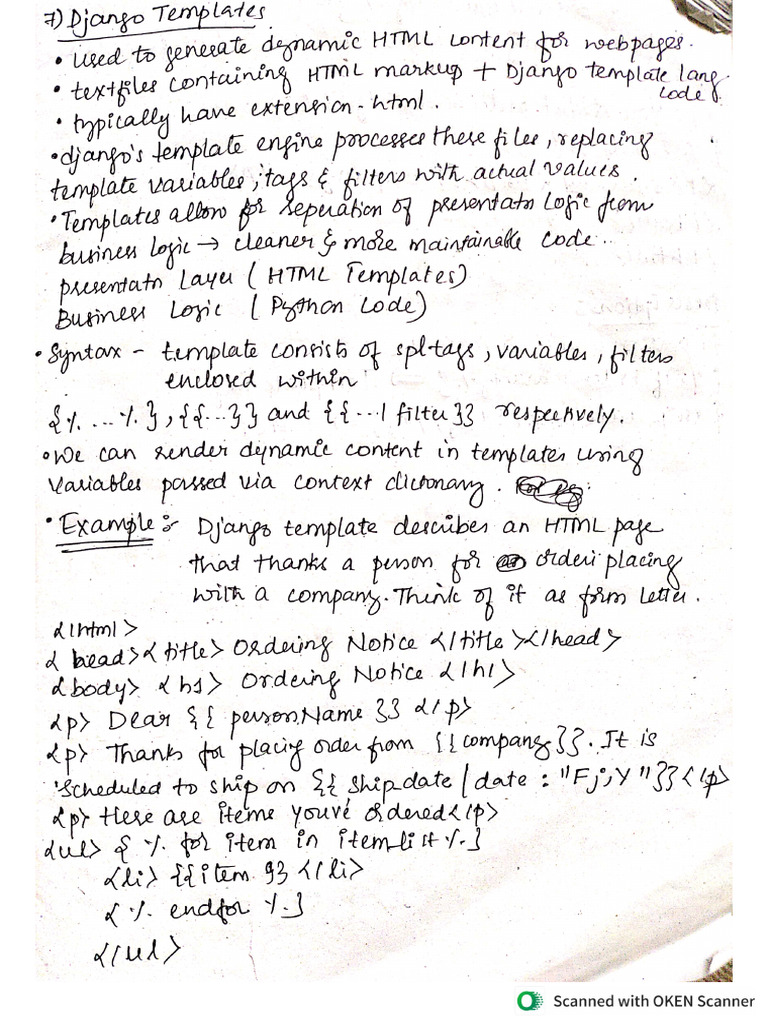 7) Django Templates
• used to generate dynamic HTML content for webpages.
• textfiles containing HTML markup + Django template lang.
code.
• typically have extension - html.
• django's template engine processes these files, replacing
template variables, tags & filters with actual values.
• Templates allow for seperation of presentatn logic from
business logic → cleaner & more maintainable code.
presentatn Layer (HTML Templates)
Business Logic (Python Code)
• Syntax - template consists of spl-tags, variables, filters
enclosed within
{% ... %}, {{...}} and {{...| filter}} respectively.
• We can render dynamic content in templates using
variables passed via context dictonary.
• Example :- Django template describes an HTML page
that thanks a person for order placing
with a company. Think of it as form letter.
</html>
< head><title> Ordering Notice </title></head>
<body> <h1> Ordering Notice </h1>
<p> Dear {{ person.Name }} </p>
<p> Thanks for placing order from {{company}}. It is
scheduled to ship on {{ ship_date | date : "F j, Y "}}</p>
<p> Here are items you've ordered</p>
<ul> { % for item in item_list %}
<li> {{item }} </li>
{ % endfor %}
</ul>
Scanned with OKEN Scanner